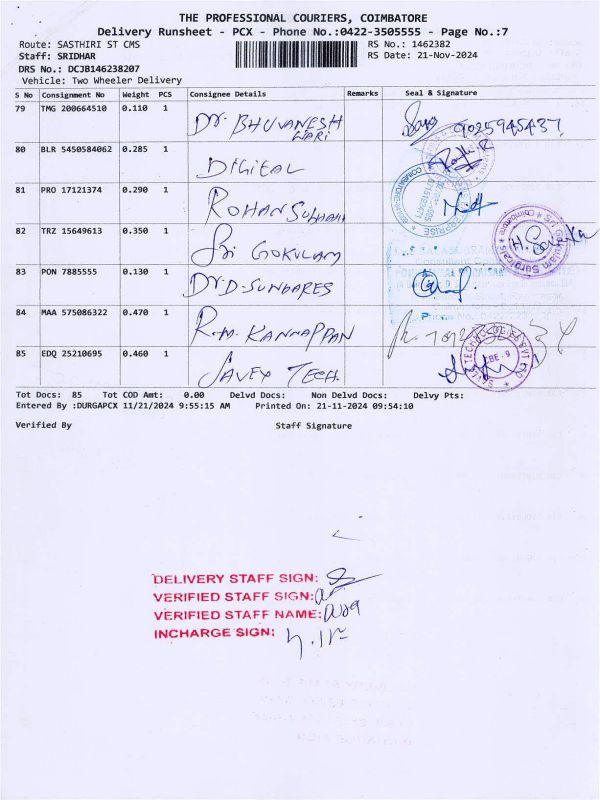 THE PROFESSIONAL COURIERS, COIMBATORE
Delivery Runsheet - PCX - Phone No.:0422-3505555 - Page No.:7
Route: SASTHIRI ST CMS RS No.: 1462382
Staff: SRIDHAR RS Date: 21-Nov-2024
DRS No.: DCJB146238207
Vehicle: Two Wheeler Delivery
S No Consignment No Weight PCS Consignee Details Remarks Seal & Signature
79 TMG 200664510 0.110 1 Dr. BHUVANESH WARI 9025945437
80 BLR 5450584062 0.285 1 DIGITAL
81 PRO 17121374 0.290 1 ROHAN
82 TRZ 15649613 0.350 1 Sri GOKULAM
83 PON 7885555 0.130 1 Dr. D. SUNDARES
84 MAA 575086322 0.470 1 R.M. KANNAPPAN
85 EDQ 25210695 0.460 1 SAVEX TECH.
Tot Docs: 85 Tot COD Amt: 0.00 Delvd Docs: Non Delvd Docs: Delvy Pts:
Entered By :DURGAPCX 11/21/2024 9:55:15 AM Printed On: 21-11-2024 09:54:10
Verified By Staff Signature
DELIVERY STAFF SIGN:
VERIFIED STAFF SIGN:
VERIFIED STAFF NAME:
INCHARGE SIGN: